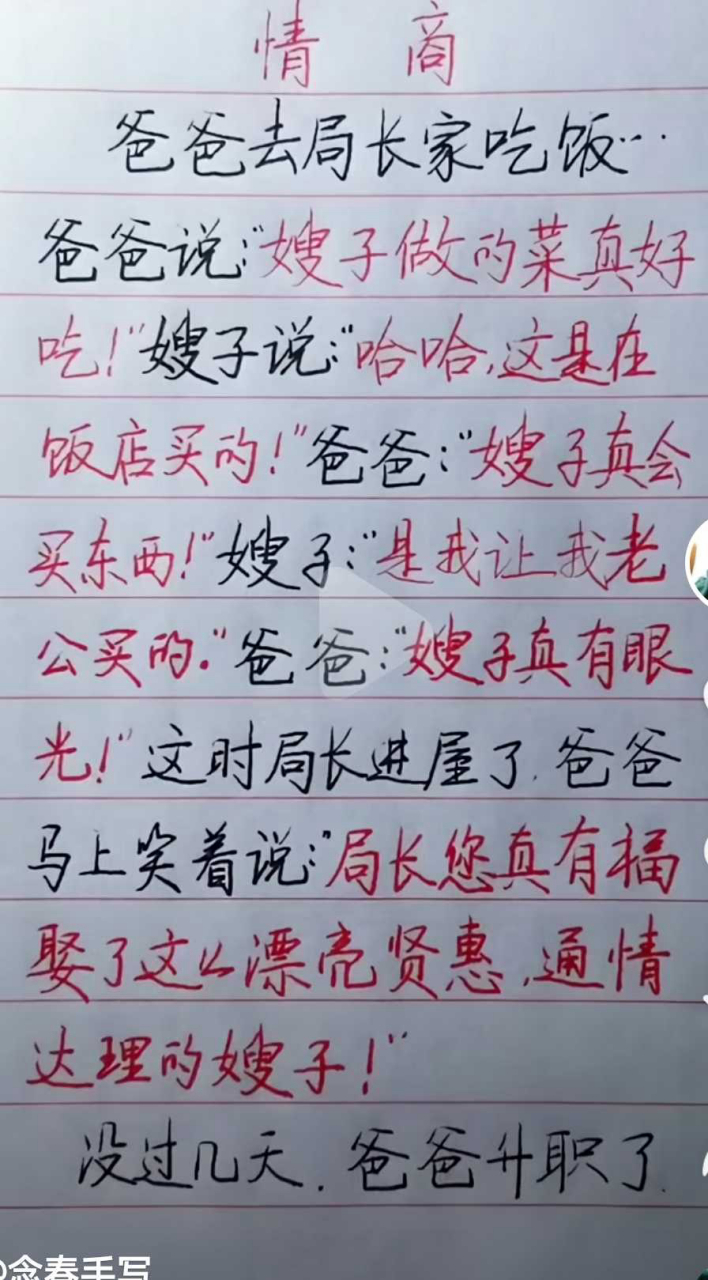 情 商
爸爸去局长家吃饭…
爸爸说:"嫂子做的菜真好
吃!"嫂子说:"哈哈,这是在
饭店买的!"爸爸:"嫂子真会
买东西!"嫂子:"是我让我老
公买的."爸爸:"嫂子真有眼
光!"这时局长进屋了.爸爸
马上笑着说:"局长您真有福
娶了这么漂亮贤惠,通情
达理的嫂子!"
没过几天.爸爸升职了.
@念春手写